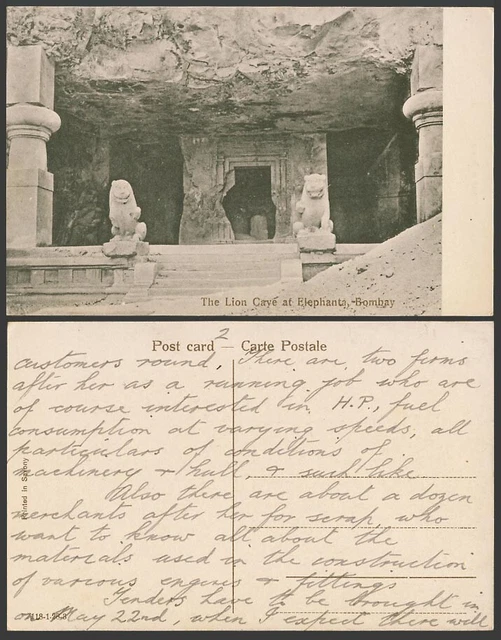 The Lion Cave at Elephanta, Bombay
Post card — Carte Postale
2
customers round, There are two firms
after her as a running job who are
of course interested in H.P., fuel
consumption at varying speeds, all
particulars of conditions of
machinery & hull, & such like
Also there are about a dozen
merchants after her for scrap who
want to know all about the
materials used in the construction
of various engines & fittings
Tenders have to be brought in
on May 22nd, when I expect there will
Printed in Saxony